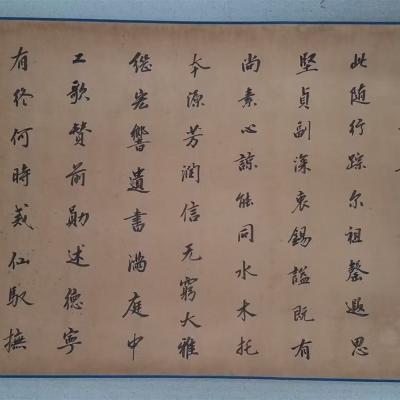 此随行踪尔祖罄遐思
堅貞副深衷錫謚既有
尚素心諒能同水木托
本源芳潤信无窮大雅
继宏響遺書滿庭中
工歌賛前勛述德寧
有终何時仙馭撫